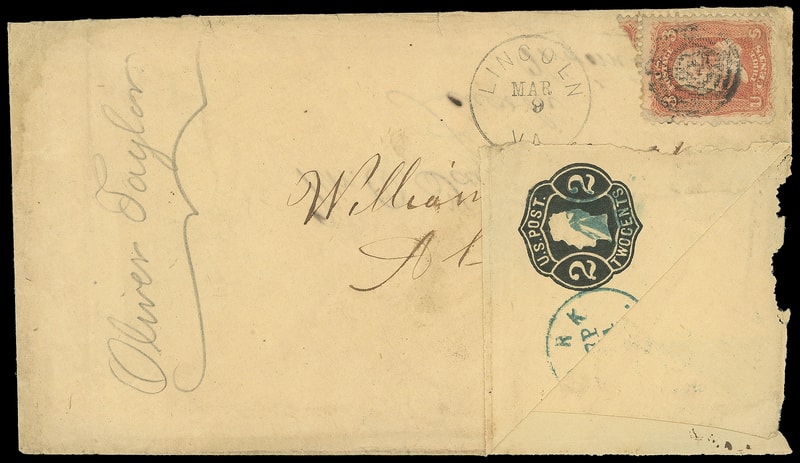 Oliver Taylor
LINCOLN
MAR
9
VA
3 3
U S
William
Al
U.S. POST.
2
TWO CENTS
2